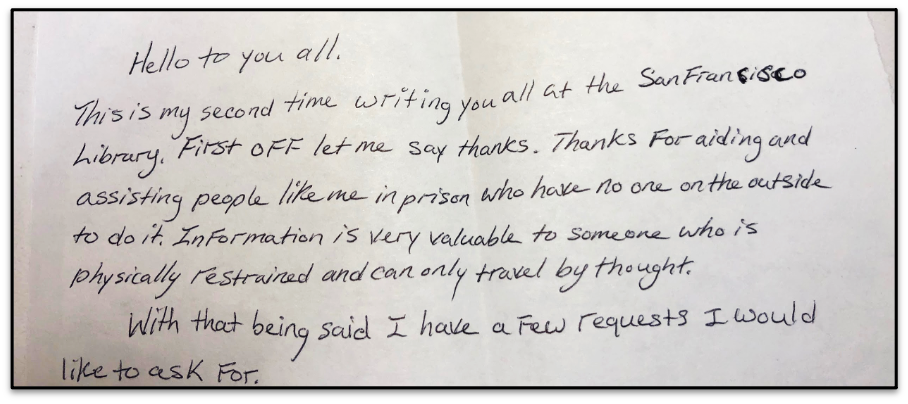 Hello to you all.
This is my second time writing you all at the San Fransisco
Library. First off let me say thanks. Thanks for aiding and
assisting people like me in prison who have no one on the outside
to do it. Information is very valuable to someone who is
physically restrained and can only travel by thought.
With that being said I have a few requests I would
like to ask for.